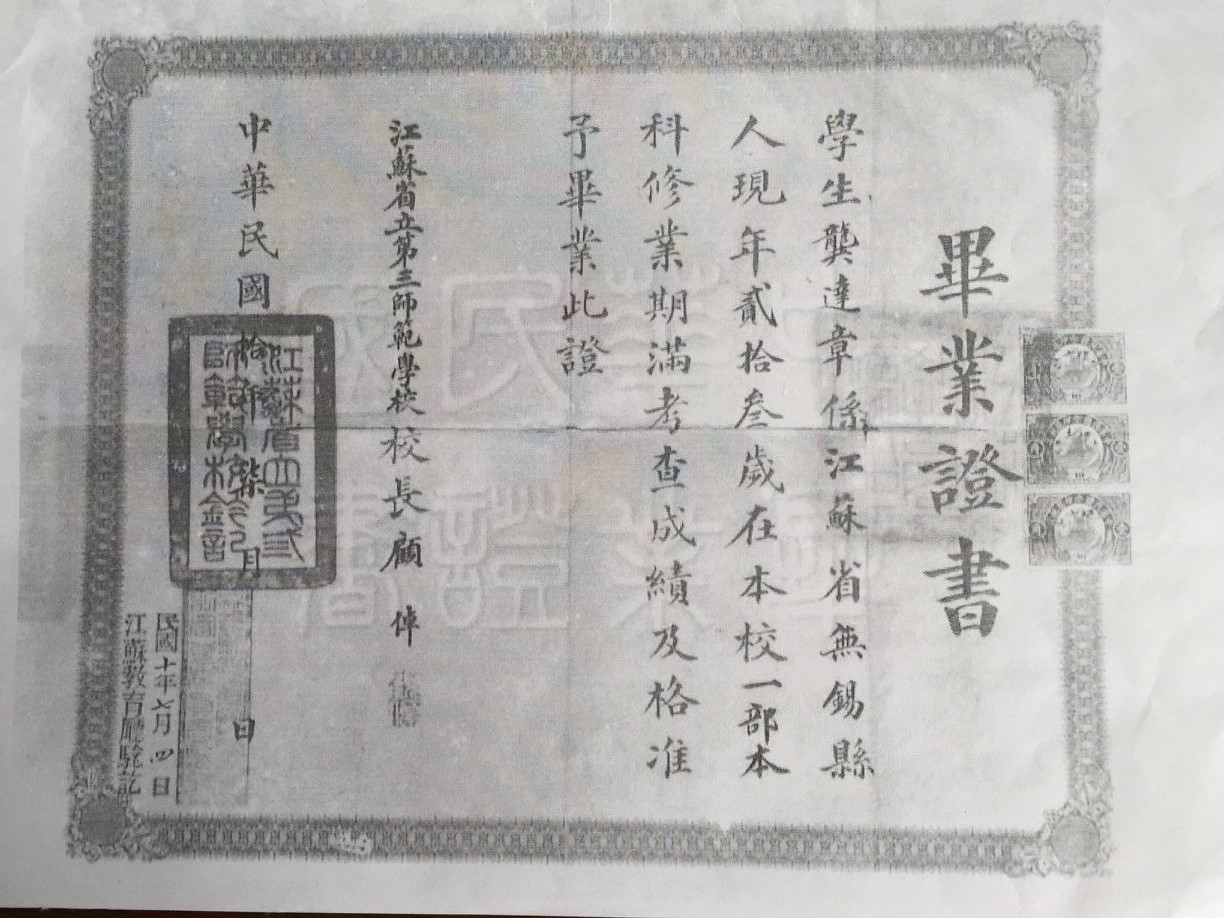 畢業證書
學生龔達章係江蘇省無錫縣
人現年貳拾叁歲在本校一部本
科修業期滿考查成績及格准
予畢業此證
江蘇省立第三師範學校校長顧倬
中華民國拾年柒月 日
民國十年七月四日
江蘇教育廳驗訖
中華民國
畢業證書